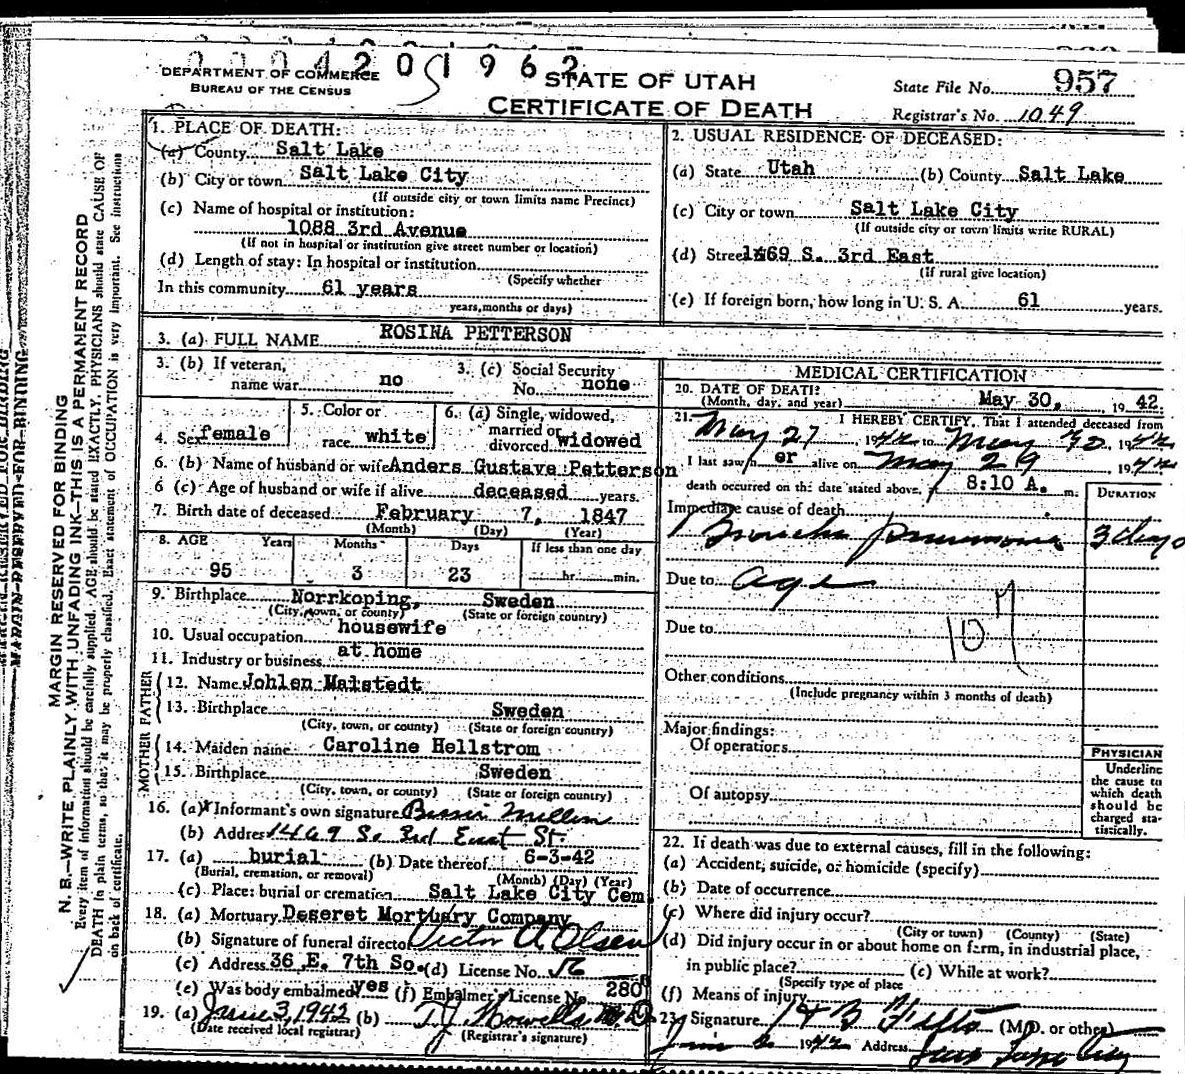 DEPARTMENT OF COMMERCE
BUREAU OF THE CENSUS
STATE OF UTAH
CERTIFICATE OF DEATH
State File No. 957
Registrar's No. 1049
1. PLACE OF DEATH:
(a) County Salt Lake
(b) City or town Salt Lake City
(If outside city or town limits name Precinct)
(c) Name of hospital or institution:
1088 3rd Avenue
(If not in hospital or institution give street number or location)
(d) Length of stay: In hospital or institution
(Specify whether
In this community 61 years
years, months or days)
2. USUAL RESIDENCE OF DECEASED:
(a) State Utah (b) County Salt Lake
(c) City or town Salt Lake City
(If outside city or town limits write RURAL)
(d) Street 1469 S. 3rd East
(If rural give location)
(e) If foreign born, how long in U. S. A. 61 years.
3. (a) FULL NAME ROSINA PETTERSON
3. (b) If veteran, name war no
3. (c) Social Security No. none
4. Sex female
5. Color or race white
6. (a) Single, widowed, married or divorced widowed
6. (b) Name of husband or wife Anders Gustave Petterson
6 (c) Age of husband or wife if alive deceased years.
7. Birth date of deceased February 7, 1847
(Month) (Day) (Year)
8. AGE Years Months Days If less than one day
95 3 23 hr. min.
9. Birthplace Norrkoping, Sweden
(City, town, or county) (State or foreign country)
10. Usual occupation housewife
11. Industry or business at home
FATHER
12. Name Johlen Malstedt
13. Birthplace Sweden
(City, town, or county) (State or foreign country)
MOTHER
14. Maiden name Caroline Hellstrom
15. Birthplace Sweden
(City, town, or county) (State or foreign country)
16. (a) Informant's own signature
(b) Address 1469 So 3rd East St.
17. (a) burial (b) Date thereof 6-3-42
(Burial, cremation, or removal) (Month) (Day) (Year)
(c) Place: burial or cremation Salt Lake City Cem.
18. (a) Mortuary Deseret Mortuary Company
(b) Signature of funeral director Victor A Olsen
(c) Address 36 E. 7th So. (d) License No. 56
(e) Was body embalmed yes (f) Embalmer's License No. 280
19. (a) June 3, 1942 (b) T J Howells M D
(Date received local registrar) (Registrar's signature)
MEDICAL CERTIFICATION
20. DATE OF DEATH: May 30, 19 42
(Month, day, and year)
21. I HEREBY CERTIFY, That I attended deceased from
May 27 1942 to May 30, 1942
I last saw h er alive on May 29 1942
death occurred on the date stated above, 8:10 A. m.
DURATION
Immediate cause of death
Broncho pneumonia 3 days
Due to age
107
Due to
Other conditions
(Include pregnancy within 3 months of death)
Major findings:
Of operations
Of autopsy
PHYSICIAN
Underline
the cause to
which death
should be
charged sta-
tistically.
22. If death was due to external causes, fill in the following:
(a) Accident, suicide, or homicide (specify)
(b) Date of occurrence
(c) Where did injury occur?
(City or town) (County) (State)
(d) Did injury occur in or about home on farm, in industrial place,
in public place? (e) While at work?
(Specify type of place
(f) Means of injury
23. Signature (M.D. or other)
1942 Address Salt Lake City
MARGIN RESERVED FOR BINDING
N. B.—WRITE PLAINLY WITH UNFADING INK—THIS IS A PERMANENT RECORD
Every item of information should be carefully supplied. AGE should be stated EXACTLY. PHYSICIANS should state CAUSE OF
DEATH in plain terms, so that it may be properly classified. Exact statement of OCCUPATION is very important. See instruction
on back of certificate.